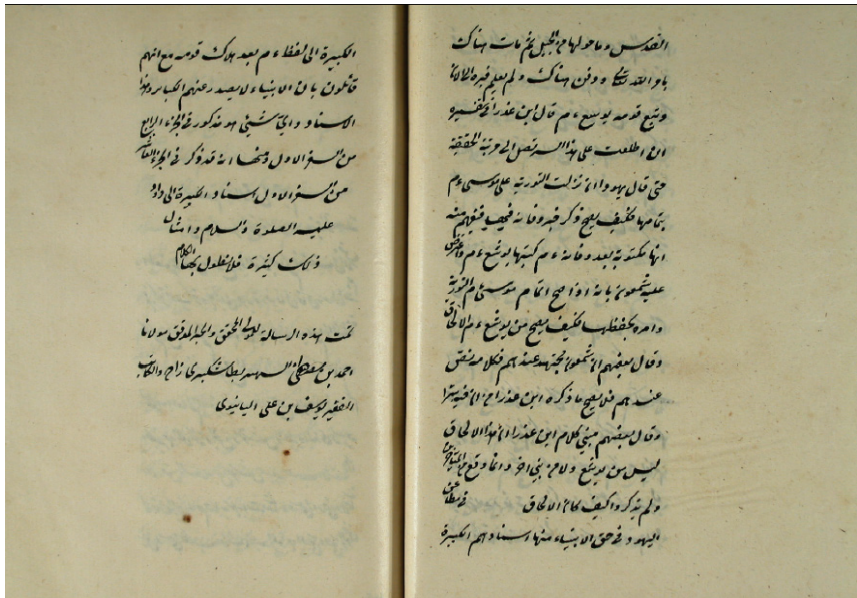 القدس وما حولها من الجبل ثم مات هناك
بامر الله تعالى ودفن هناك ولم يعلم قبره الى الآن
وتبع قومه يوشع ءم قال ابن عذرا في تفسيره
ان اطلعت على هذا السر تصل الى مرتبة الحقيقة
حتى قال يهودا انما نزلت التورية على موسى ءم
بتمامها فكيف يصح ذكر فيه وفاته فيجب
انها مكتوبة بعد وفاته ءم كتبها يوشع ءم واعترض
عليه شمعون بانه اذا صح اتمام موسى ءم التورية
وامره بحفظها فكيف يصح من يوشع ءم الالحاق
وقال بعضهم ان شمعون مجتهد عندهم فكلامه نص
عندهم فلا يصح ما ذكره ابن عذرا من ان فيه سرا
وقال بعضهم مبنى كلام ابن عذرا ان هذا الالحاق
ليس من يوشع ولا من نبي اخر وانما وقع من المتأخرين
ولم يذكروا كيف كان الالحاق في مطاعن
اليهود في حق الانبياء منها اسنادهم الكبيرة
الكبيرة الى لوط ءم بعد هلاك قومه مع انهم
قائلون بان الانبياء لا يصدر عنهم الكبائر وهذا
الاسناد وأي شيء هو مذكور في الجزء الرابع
من السفر الاول ومنها انه قد ذكر في الجزء
من السفر الاول اسناد الكبيرة الى داود
عليه الصلوة والسلام وامثال
ذلك كثيرة فلا نطول بها الكلام
تمت هذه الرسالة للمولى المحقق والحبر المدقق مولانا
احمد بن مصطفى الشهير بطاشكبرى زاده والكاتب
الفقير يوسف بن على اليانيوى